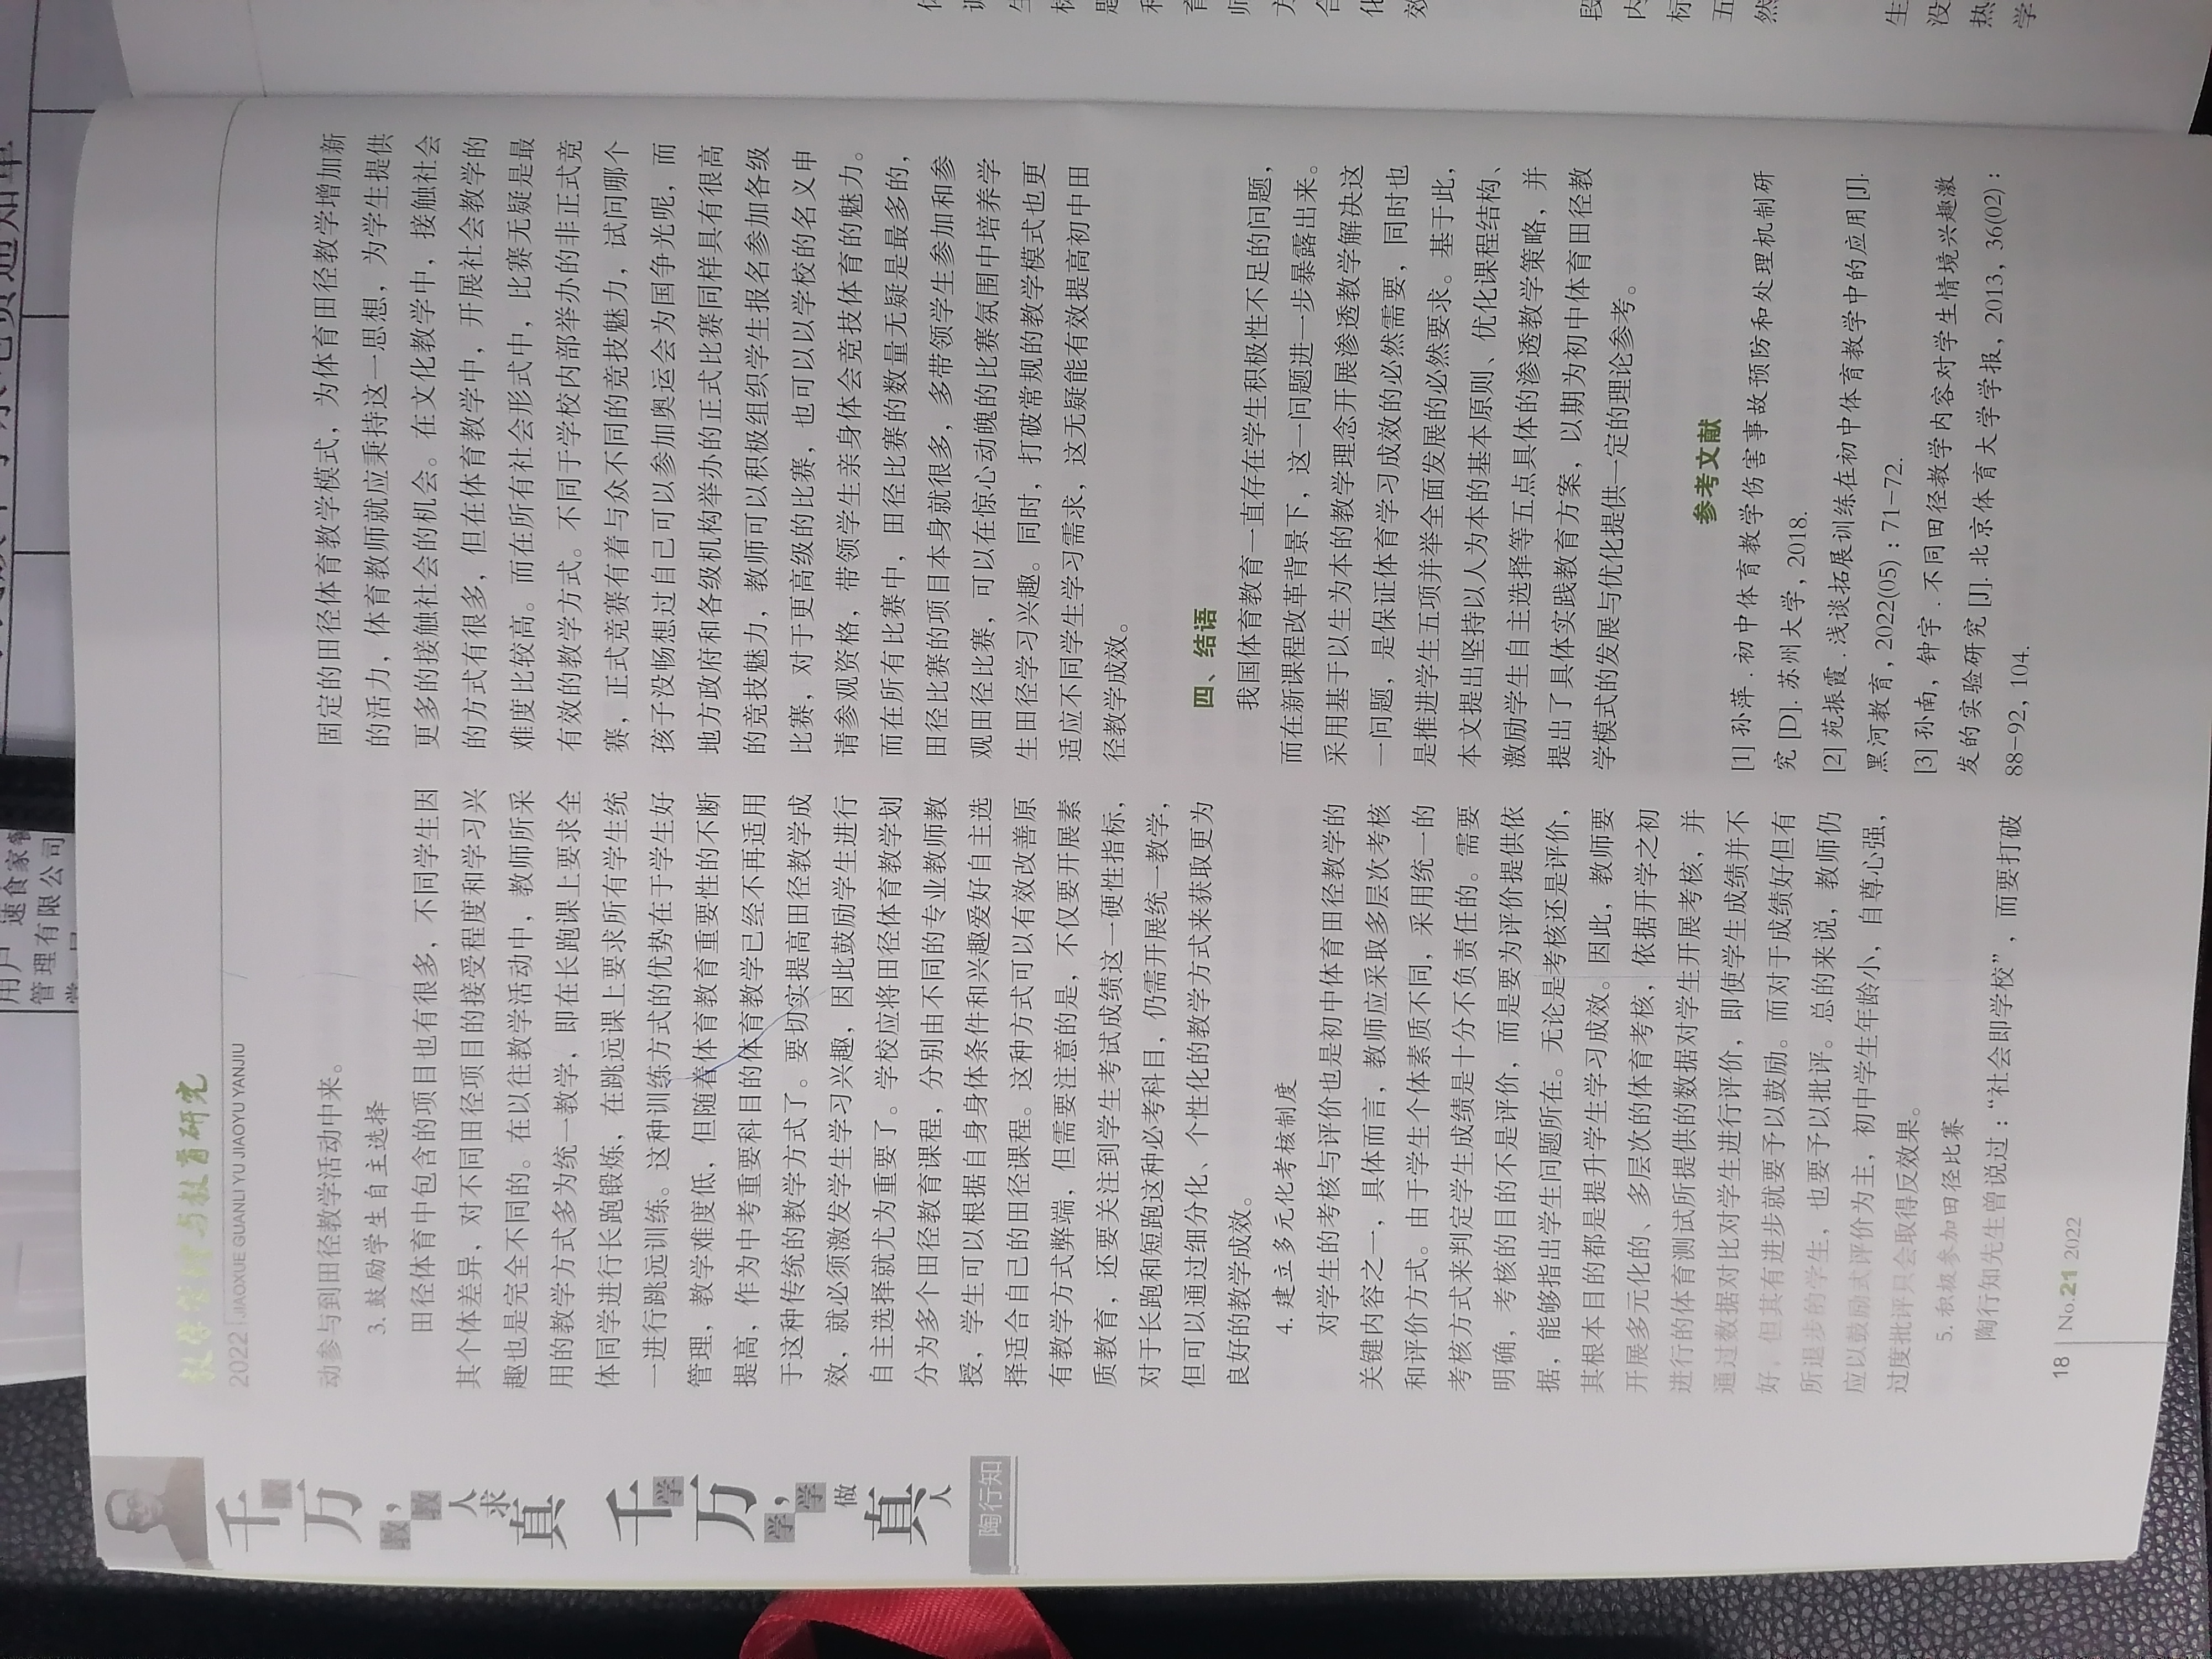 教学管理与教育研究
2022 JIAOXUE GUANLI YU JIAOYU YANJIU
千教
万
教，教
人求
真
千学
万
学，学
做
真人
陶行知
动参与到田径教学活动中来。
3. 鼓励学生自主选择
田径体育中包含的项目也有很多，不同学生因
其个体差异，对不同田径项目的接受程度和学习兴
趣也是完全不同的。在以往教学活动中，教师所采
用的教学方式多为统一教学，即在长跑课上要求全
体同学进行长跑锻炼，在跳远课上要求所有学生统
一进行跳远训练。这种训练方式的优势在于学生好
管理，教学难度低，但随着体育教育重要性的不断
提高，作为中考重要科目的体育教学已经不再适用
于这种传统的教学方式了。要切实提高田径教学成
效，就必须激发学生学习兴趣，因此鼓励学生进行
自主选择就尤为重要了。学校应将田径体育教学划
分为多个田径教育课程，分别由不同的专业教师教
授，学生可以根据自身身体条件和兴趣爱好自主选
择适合自己的田径课程。这种方式可以有效改善原
有教学方式弊端，但需要注意的是，不仅要开展素
质教育，还要关注到学生考试成绩这一硬性指标，
对于长跑和短跑这种必考科目，仍需开展统一教学，
但可以通过细分化、个性化的教学方式来获取更为
良好的教学成效。
4. 建立多元化考核制度
对学生的考核与评价也是初中体育田径教学的
关键内容之一，具体而言，教师应采取多层次考核
和评价方式。由于学生个体素质不同，采用统一的
考核方式来判定学生成绩是十分不负责任的。需要
明确，考核的目的不是评价，而是要为评价提供依
据，能够指出学生问题所在。无论是考核还是评价，
其根本目的都是提升学生学习成效。因此，教师要
开展多元化的、多层次的体育考核，依据开学之初
进行的体育测试所提供的数据对学生开展考核，并
通过数据对比对学生进行评价，即使学生成绩并不
好，但其有进步就要予以鼓励。而对于成绩好但有
所退步的学生，也要予以批评。总的来说，教师仍
应以鼓励式评价为主，初中学生年龄小，自尊心强，
过度批评只会取得反效果。
5. 积极参加田径比赛
陶行知先生曾说过：“社会即学校”，而要打破
固定的田径体育教学模式，为体育田径教学增加新
的活力，体育教师就应秉持这一思想，为学生提供
更多的接触社会的机会。在文化教学中，接触社会
的方式有很多，但在体育教学中，开展社会教学的
难度比较高。而在所有社会形式中，比赛无疑是最
有效的教学方式。不同于学校内部举办的非正式竞
赛，正式竞赛有着与众不同的竞技魅力，试问哪个
孩子没畅想过自己可以参加奥运会为国争光呢，而
地方政府和各级机构举办的正式比赛同样具有很高
的竞技魅力，教师可以积极组织学生报名参加各级
比赛，对于更高级的比赛，也可以以学校的名义申
请参观资格，带领学生亲身体会竞技体育的魅力。
而在所有比赛中，田径比赛的数量无疑是最多的，
田径比赛的项目本身就很多，多带领学生参加和参
观田径比赛，可以在惊心动魄的比赛氛围中培养学
生田径学习兴趣。同时，打破常规的教学模式也更
适应不同学生学习需求，这无疑能有效提高初中田
径教学成效。
四、结语
我国体育教育一直存在学生积极性不足的问题，
而在新课程改革背景下，这一问题进一步暴露出来。
采用基于以生为本的教学理念开展渗透教学解决这
一问题，是保证体育学习成效的必然需要，同时也
是推进学生五项并举全面发展的必然要求。基于此，
本文提出坚持以人为本的基本原则、优化课程结构、
激励学生自主选择等五点具体的渗透教学策略，并
提出了具体实践教育方案，以期为初中体育田径教
学模式的发展与优化提供一定的理论参考。
参考文献
[1] 孙萍．初中体育教学伤害事故预防和处理机制研
究 [D]. 苏州大学，2018.
[2] 苑振霞．浅谈拓展训练在初中体育教学中的应用 [J].
黑河教育，2022(05)：71-72.
[3] 孙南，钟宇．不同田径教学内容对学生情境兴趣激
发的实验研究 [J]. 北京体育大学学报，2013，36(02)：
88-92，104.
18 No.21 2022
管理有限公司